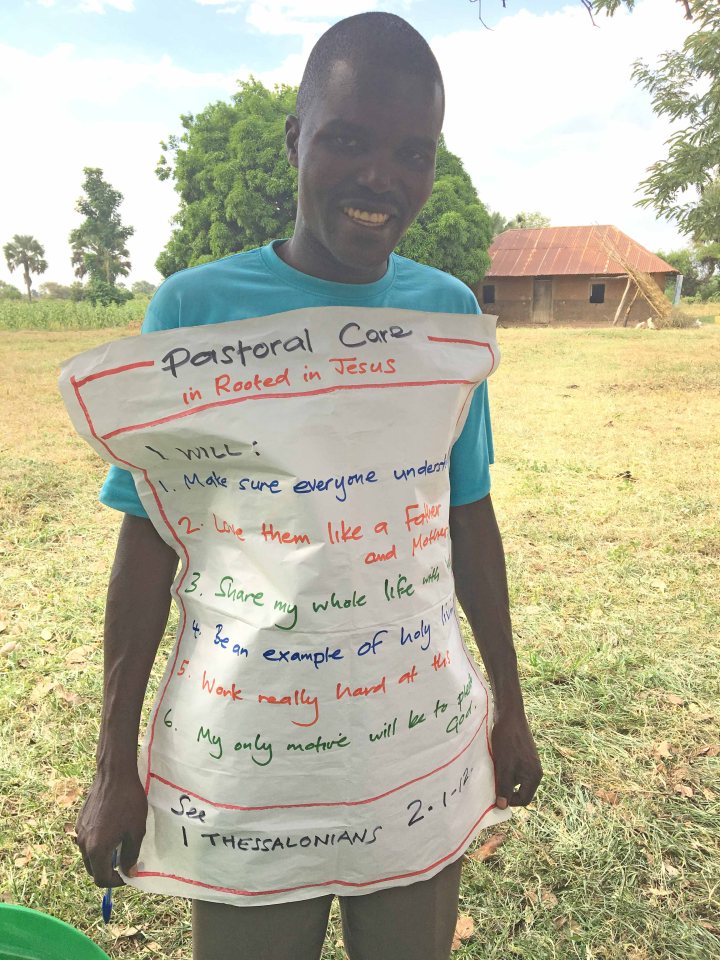 Pastoral Care
in Rooted in Jesus
I WILL:
1. Make sure everyone underst
2. Love them like a Father
and Mother
3. Share my whole life with
4. Be an example of holy livi
5. Work really hard at this
6. My only motive will be to please
God.
See
1 THESSALONIANS 2.1-12.